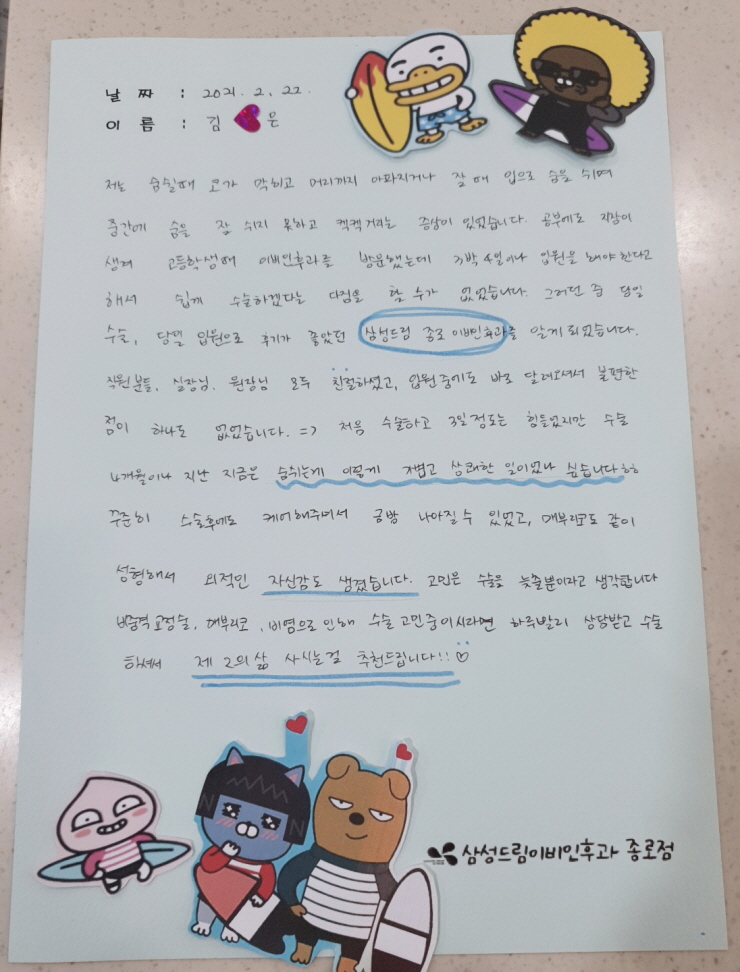 날 짜 : 2021. 2. 22.
이 름 : 김 은
저는 숨쉴때 코가 막히고 머리까지 아파지거나 잘 때 입으로 숨을 쉬며
중간에 숨을 잘 쉬지 못하고 켁켁거리는 증상이 있었습니다. 공부에도 지장이
생겨 고등학생때 이비인후과를 방문했는데 3박 4일이나 입원을 해야 한다고
해서 쉽게 수술하겠다는 다짐을 할 수가 없었습니다. 그러던 중 당일
수술, 당일 입원으로 후기가 좋았던 삼성드림 종로 이비인후과를 알게 되었습니다.
직원분들, 실장님, 원장님 모두 친절하셨고, 입원중에도 바로 달려오셔서 불편한
점이 하나도 없었습니다. => 처음 수술하고 3일정도는 힘들었지만 수술
4개월이나 지난 지금은 숨쉬는게 이렇게 가볍고 상쾌한 일이었나 싶습니다ㅎㅎ
꾸준히 수술후에도 케어해주셔서 금방 나아질 수 있었고, 매부리코도 같이
성형해서 외적인 자신감도 생겼습니다. 고민은 수술을 늦출뿐이라고 생각합니다
비중격교정술, 매부리코, 비염으로 인해 수술 고민중이시라면 하루빨리 상담받고 수술
하셔서 제 2의 삶 사시는걸 추천드립니다!! ♡
삼성드림이비인후과 종로점